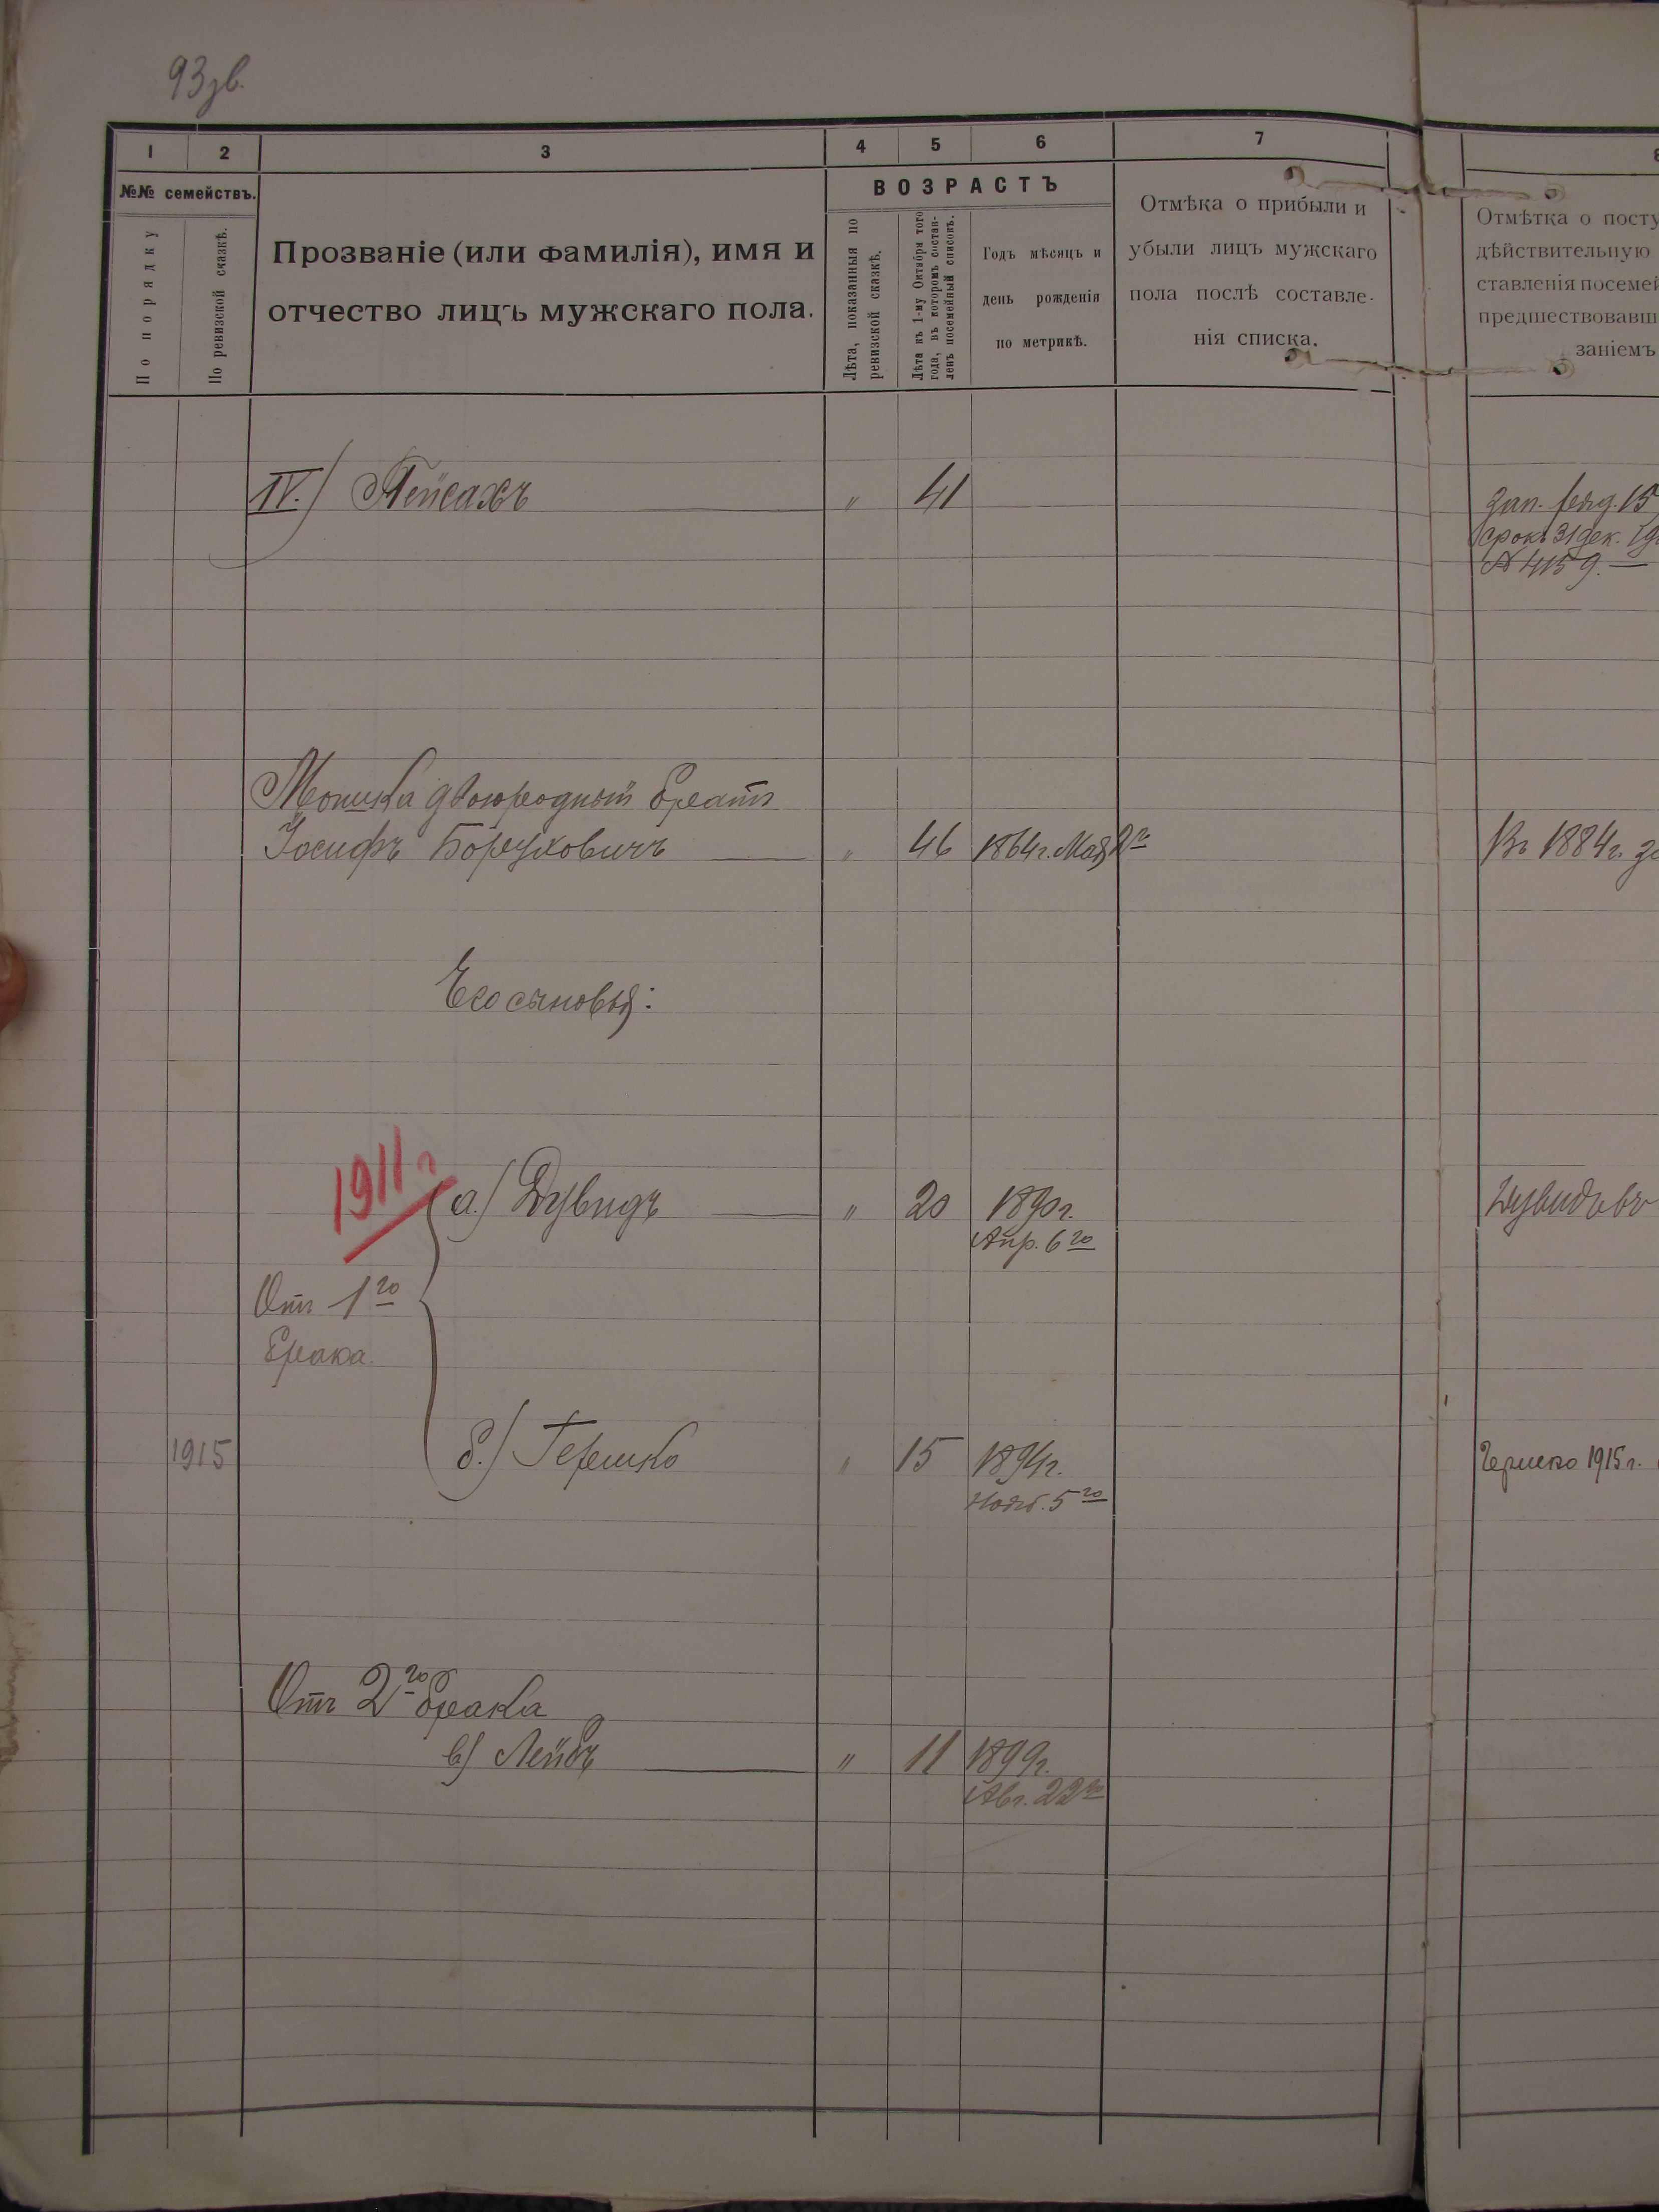 93зв.
1 2 3 4 5 6 7 8
№№ семействъ.
По порядку
По ревизской сказкѣ.
Прозваніе (или фамилія), имя и
отчество лицъ мужскаго пола.
ВОЗРАСТЪ
Лѣта, показанныя по
ревизской сказкѣ.
Лѣта къ 1-му Октября того
года, въ которомъ состав-
ленъ посемейный списокъ.
Годъ мѣсяцъ и
день рожденія
по метрикѣ.
Отмѣка о прибыли и
убыли лицъ мужскаго
пола послѣ составле-
нія списка.
Отмѣтка о посту
дѣйствительную
ставленія посемей
предшествовавш
заніемъ
IV.) Пейсахъ " 41
Зап. 15
срокъ 31 дек.
№ 4159.
Мошка двоюродный братъ
Іосифъ Боруховичъ " 46 1864г. Мая 2го
Въ 1884г.
Его сыновья:
1911 г
а.) Дувидъ " 20 1890г.
Апр. 6го
Дувидъ въ
Отъ 1го
брака.
1915 б.) Гершко " 15 1894г.
Нояб. 5го
Гершко 1915г.
Отъ 2го брака
в) Лейбъ " 11 1899г.
Авг. 22го